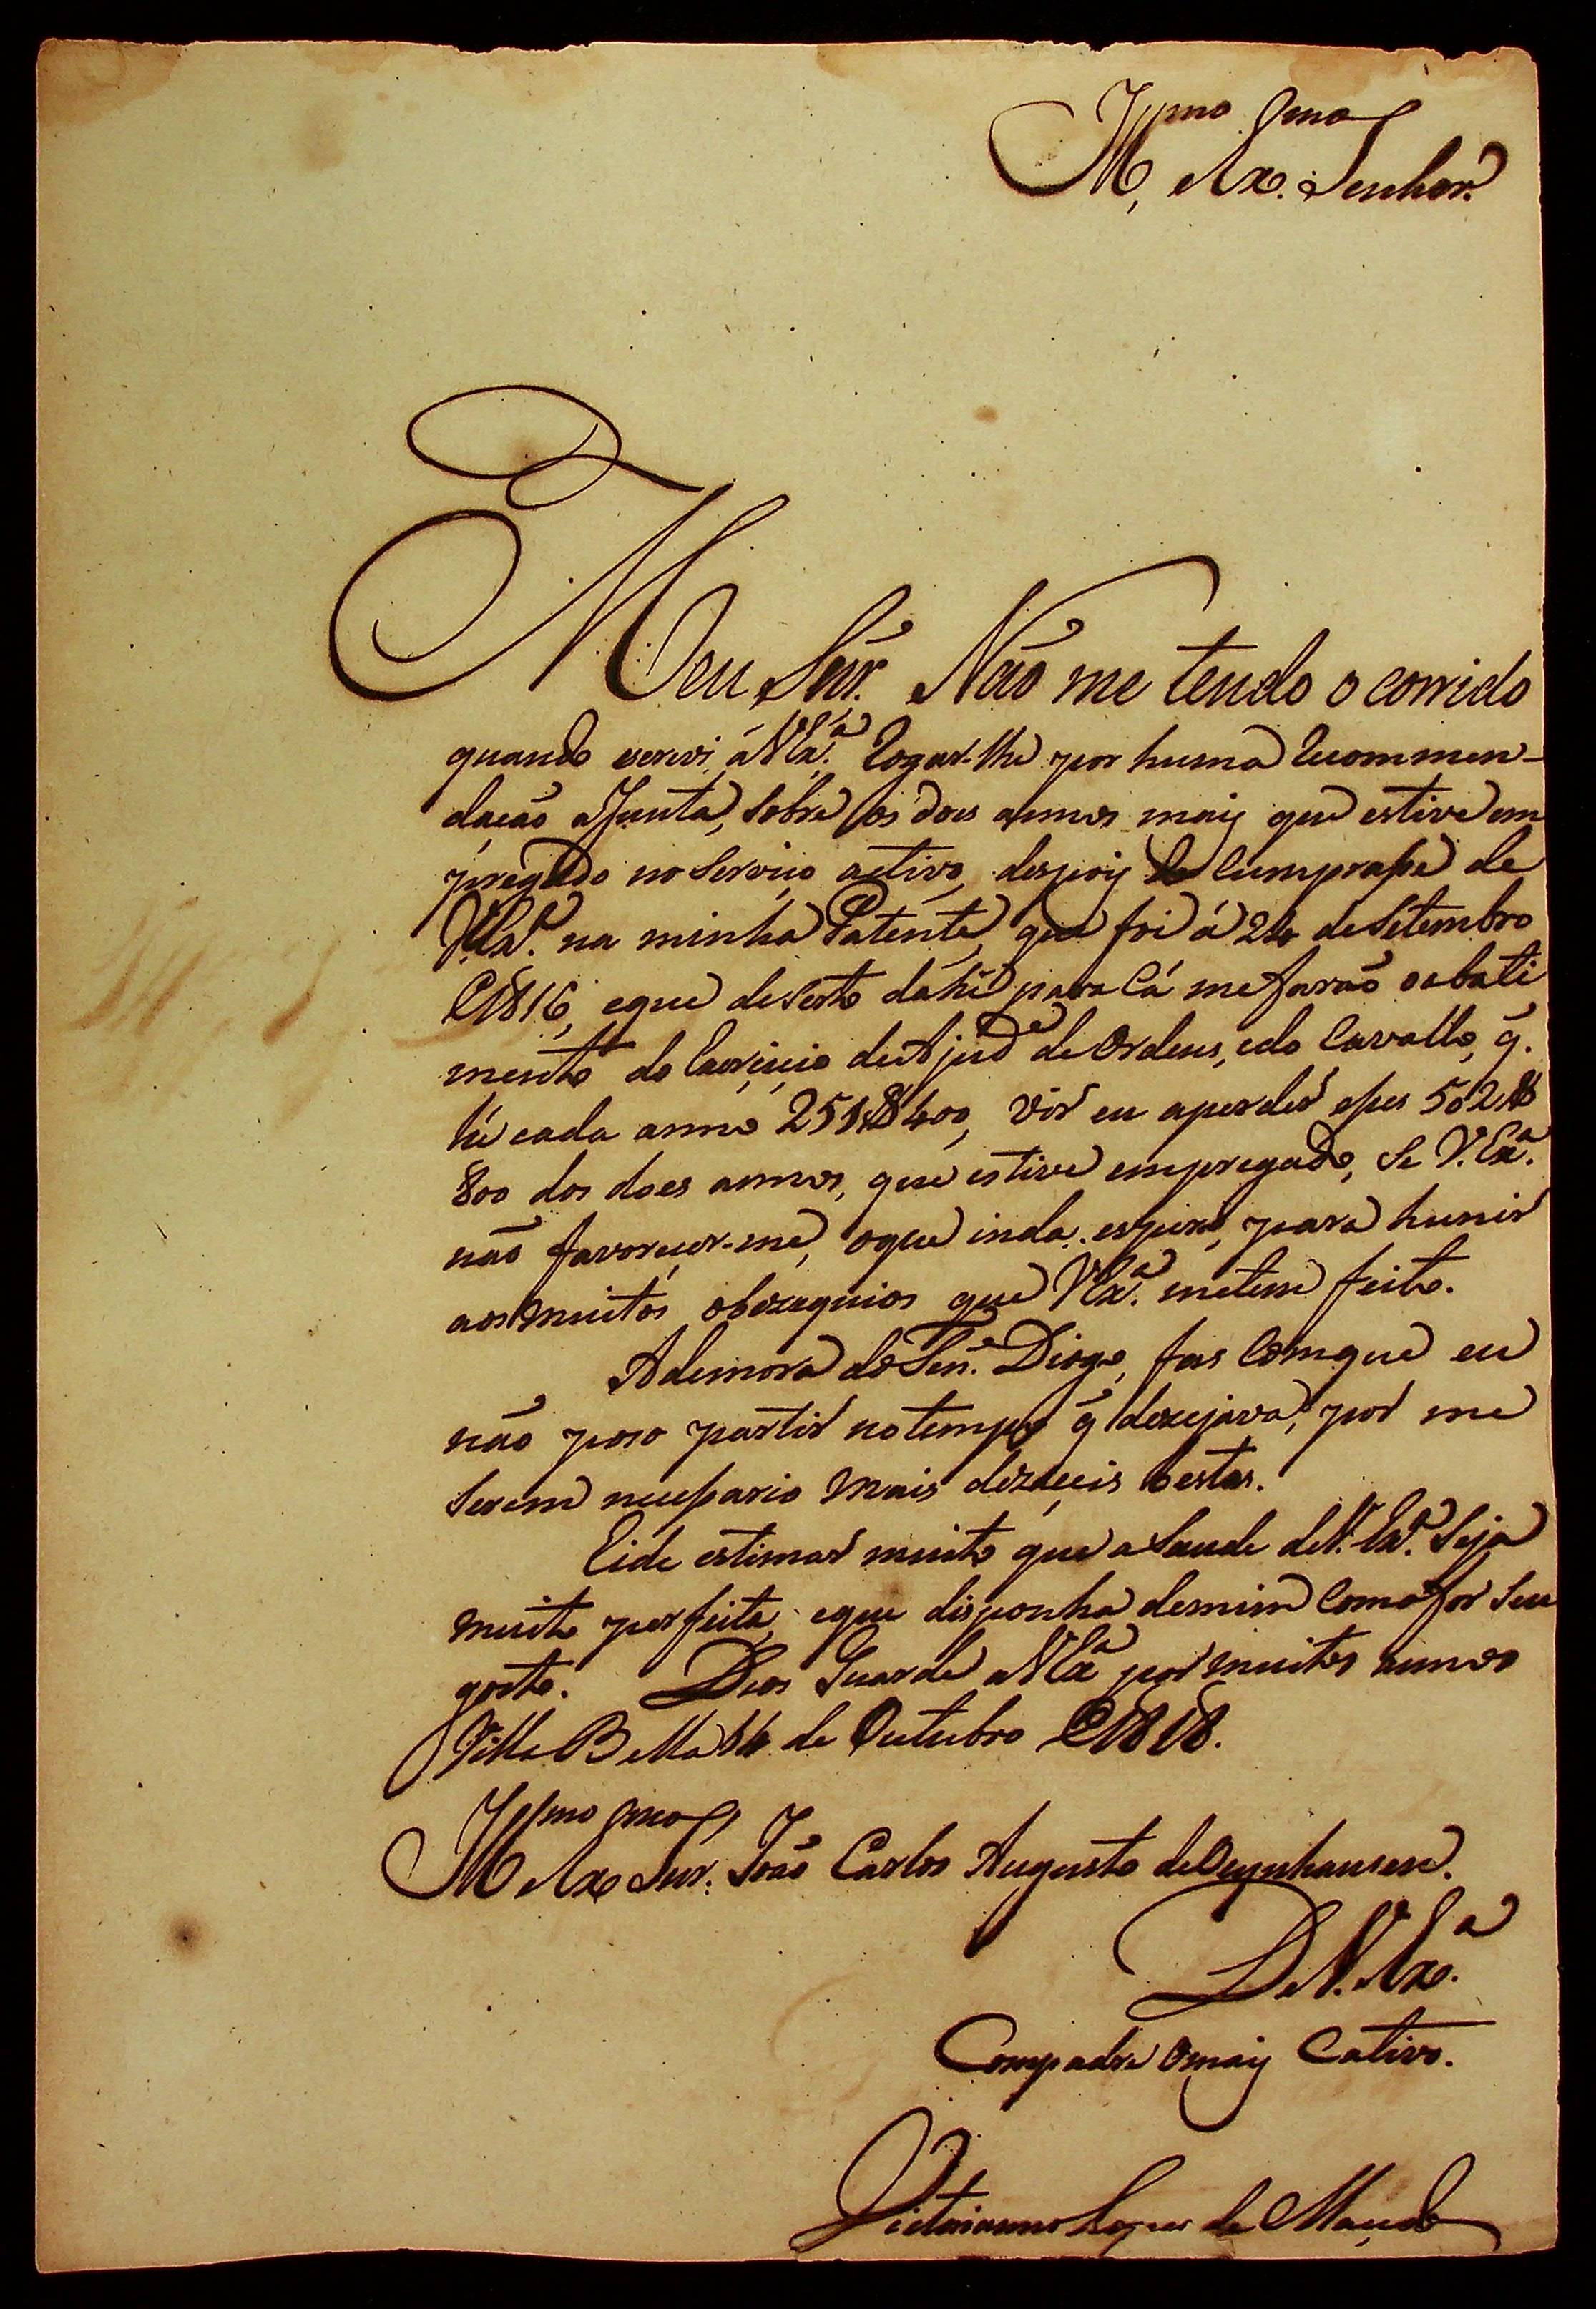 Ill.mo Ex.mo Senhor.
Meu Snr. Não me tendo o corrido
quando escrevi á V.Ex.a Rogar-lhe por huma Recommen-
dação a Junta, sobre os dous annos mais que estive em
pregado no Serviço activo, despois de Cumprasse de
V.Ex.a na minha Patente, que foi á 24 de Setembro
1816, eque de Certo dahi para Cá me farão o abati
mento do Exercicio de Ajud.e de Ordens, e do Cavallo, q̃.
hé cada anno 251$400, vir eu a perder esses 502$
800 dos does annos, que estive empregado, se V.Ex.a
não favorecer-me, oque inda espero, para hunir
aos muitos obezequios que V.Ex.a metem feito.
A demora do Sen.e Diogo, fas Com que eu
não poso partir no tempo q̃ dezejava, por me
Serem necessario mais dezaceis bestas.
Eide estimar muito que a Saude de V.Ex.a Seja
muito perfeita, eque disponha demim Como for Seu
gosto. Deos Guarde a V.Ex.a por muitos annos
Villa Bella 14 de Outubro 1818.
Ill.mo Ex.mo Snr. João Carlos Augusto de Oeynhausen.
De V.Ex.a
Compadre o mais Cativo.
Victorianno Lopes de Macedo